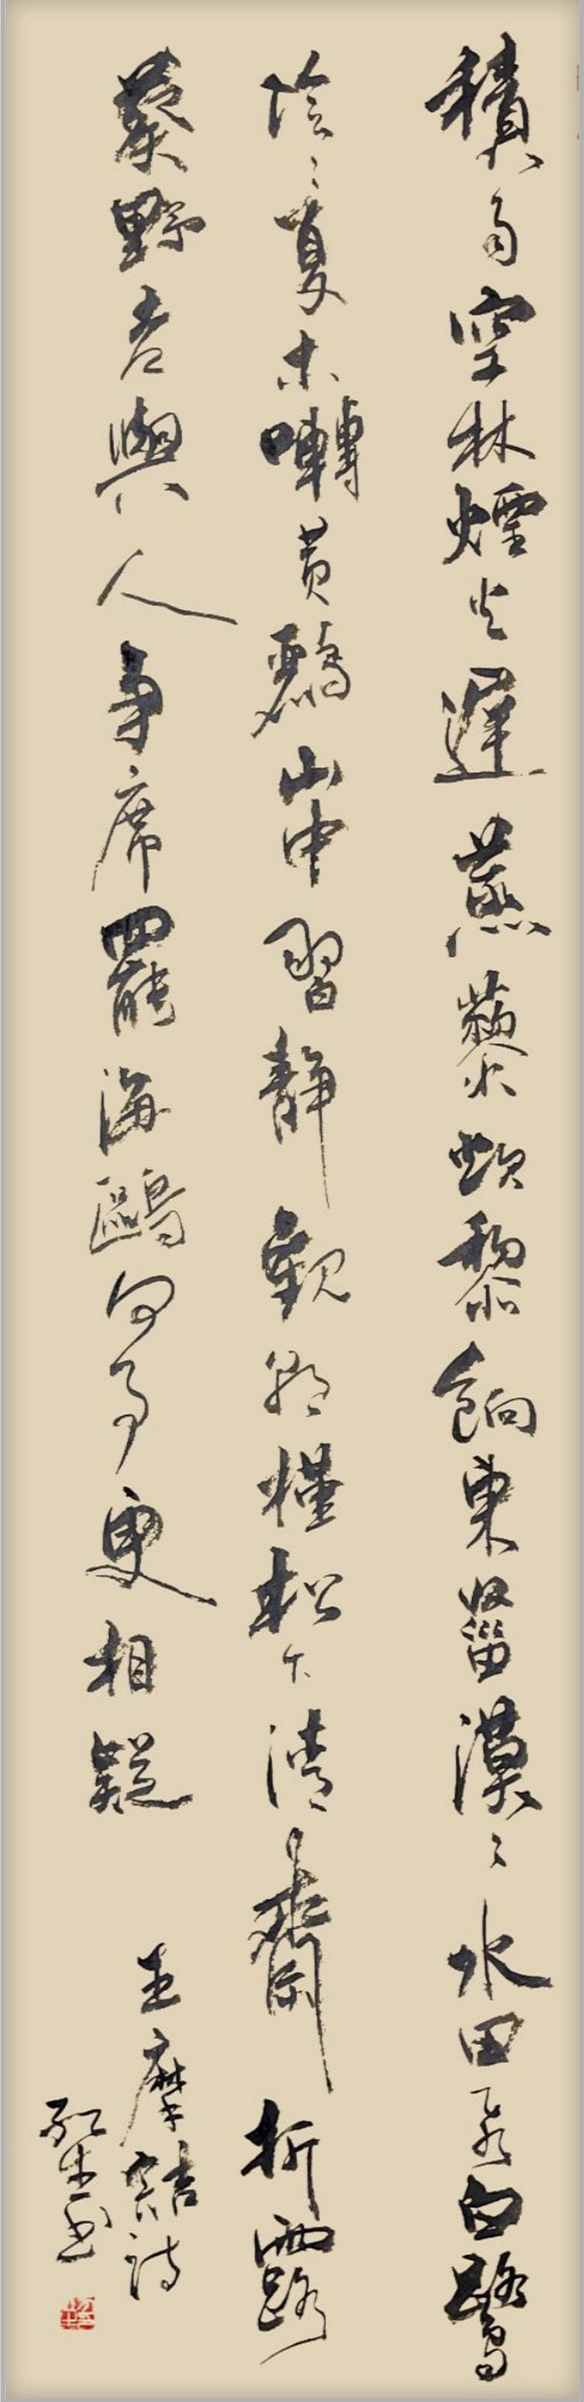 積雨空林煙火遲蒸藜炊黎餉東菑漠〻水田飛白鷺
陰〻夏木囀黃鸝山中習靜觀朝槿松下清齋折露
葵野老與人爭席罷海鷗何事更相疑
王摩詰詩
書